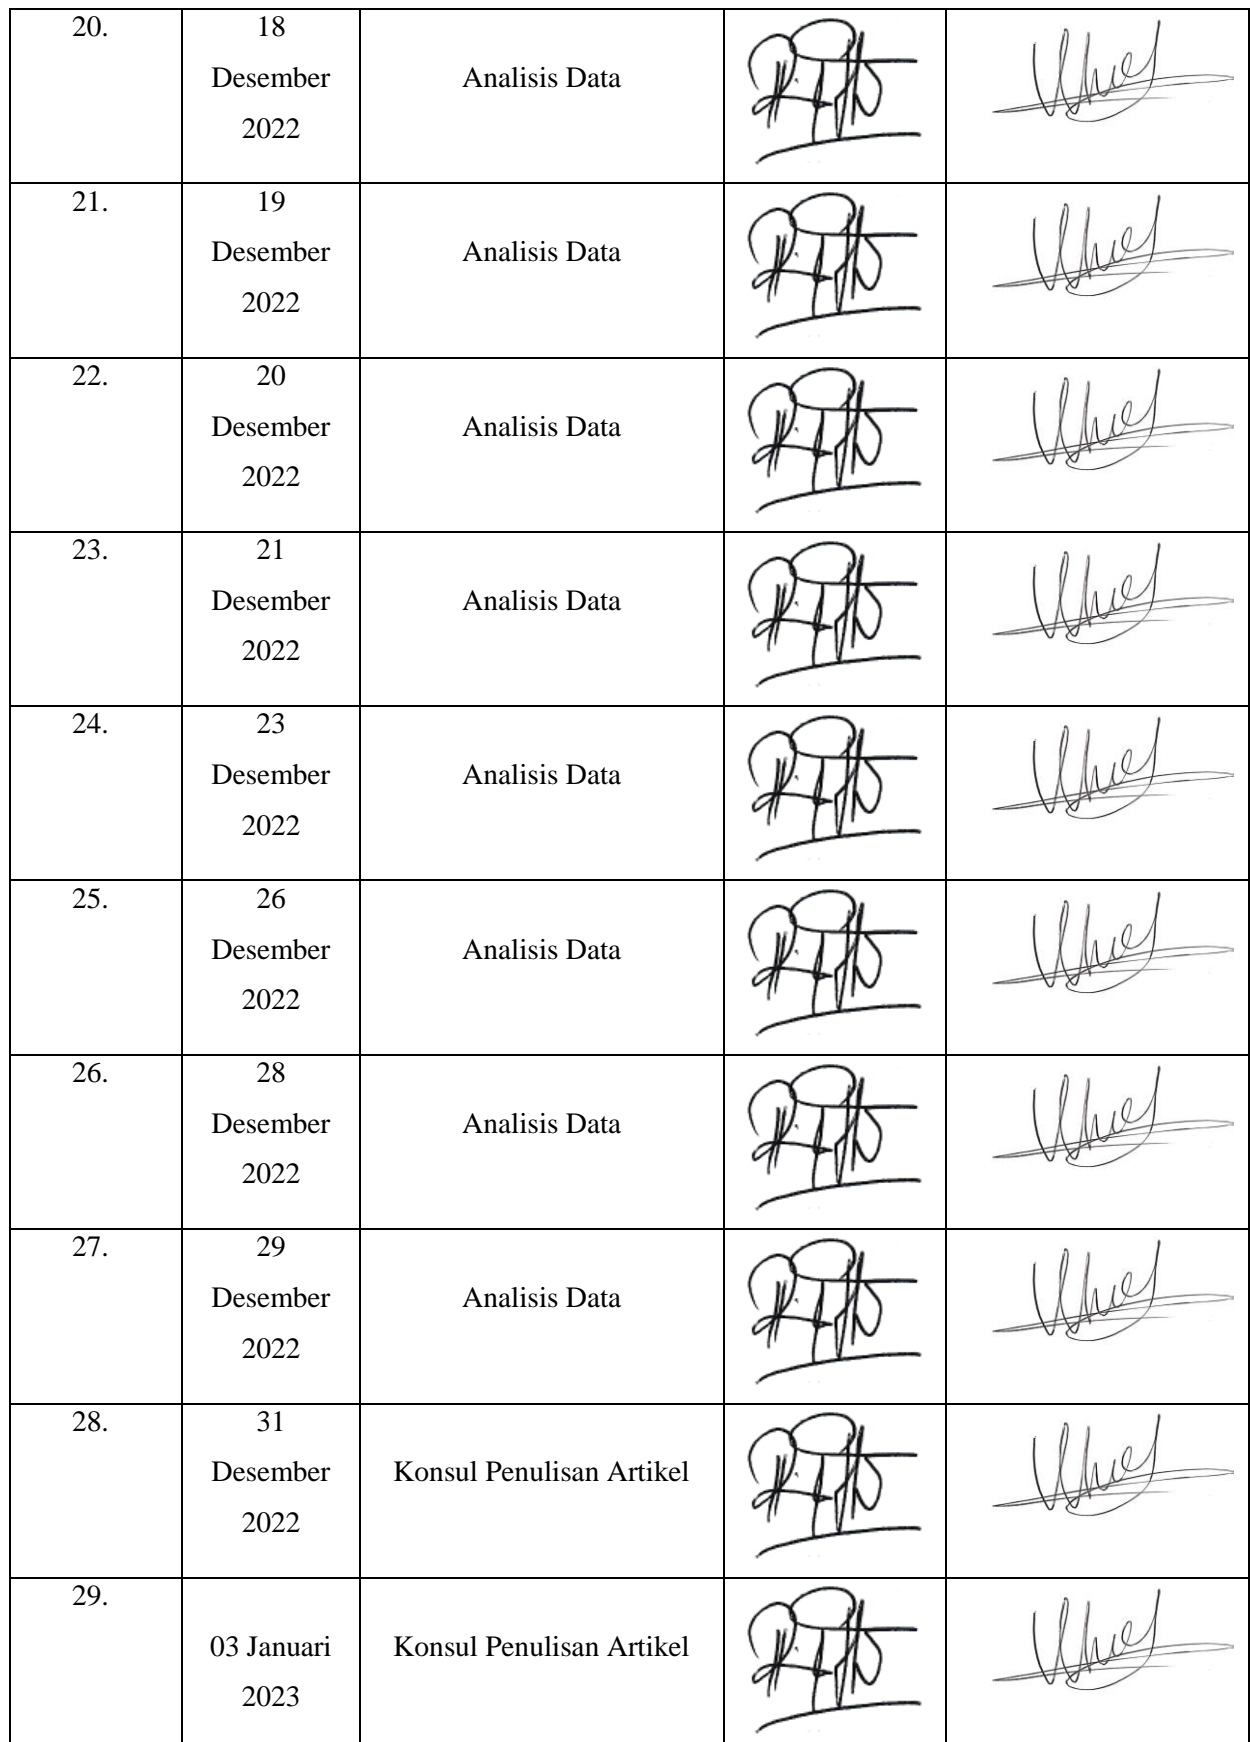 20.
18
Desember
2022
Analisis Data
21.
19
Desember
2022
Analisis Data
22.
20
Desember
2022
Analisis Data
23.
21
Desember
2022
Analisis Data
24.
23
Desember
2022
Analisis Data
25.
26
Desember
2022
Analisis Data
26.
28
Desember
2022
Analisis Data
27.
29
Desember
2022
Analisis Data
28.
31
Desember
2022
Konsul Penulisan Artikel
29.
03 Januari
2023
Konsul Penulisan Artikel